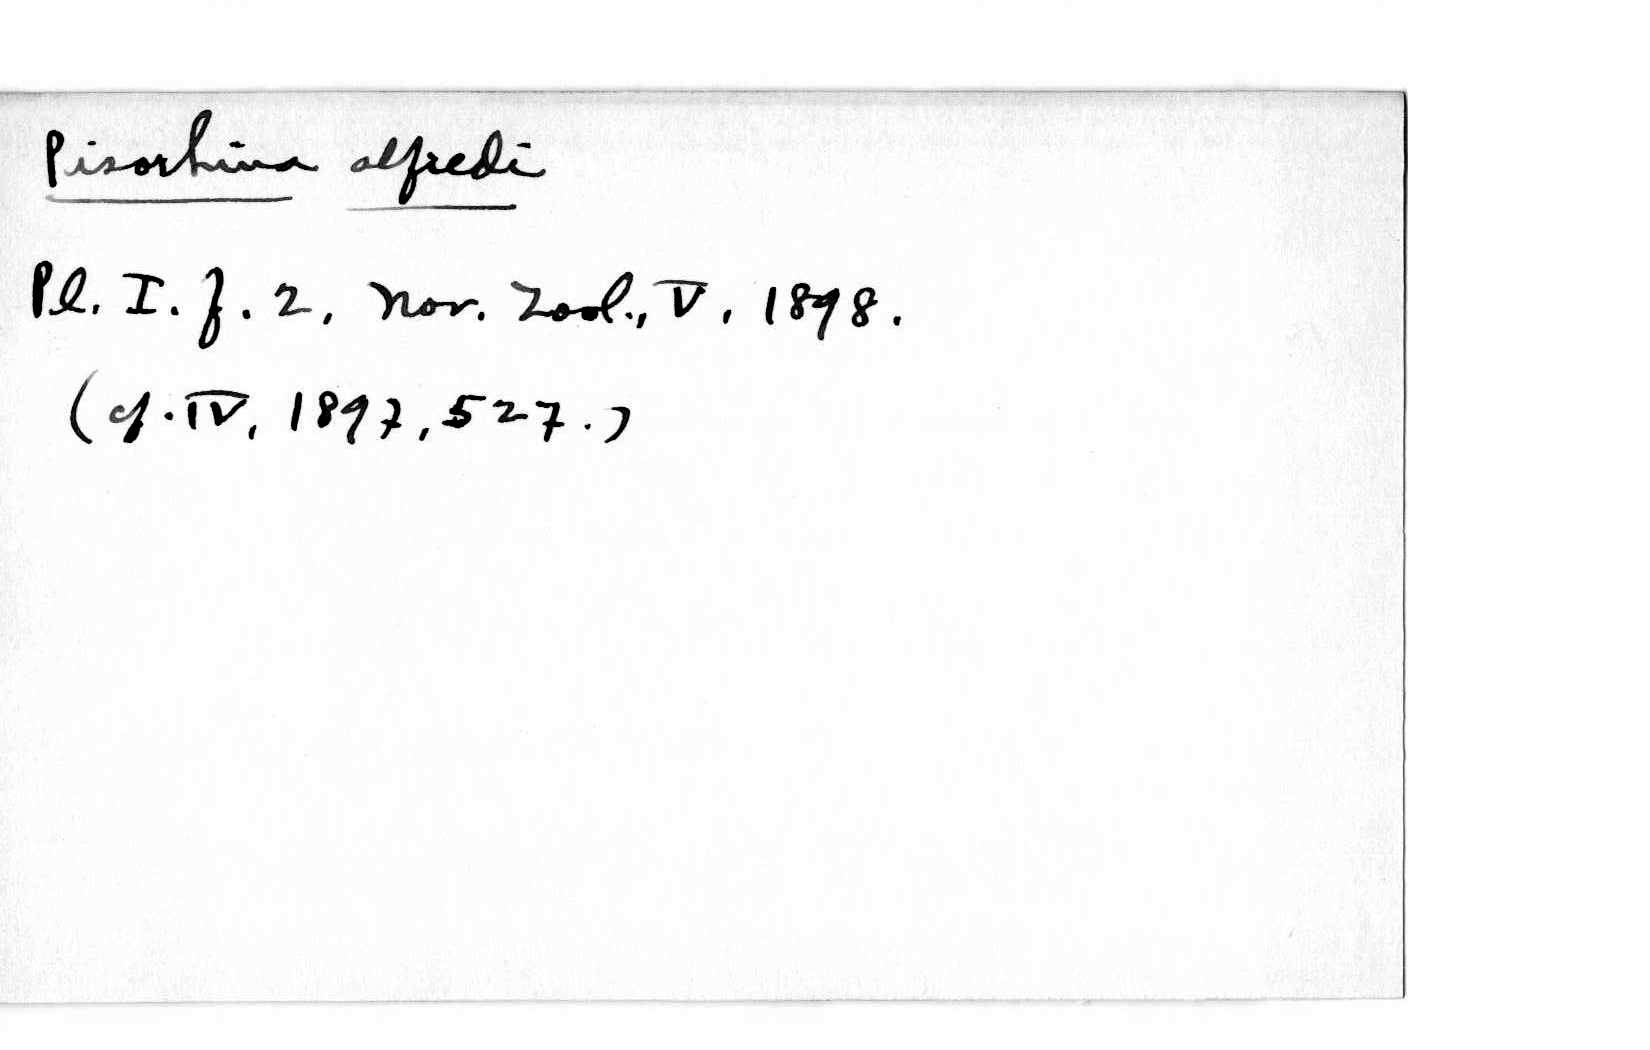 Pisorhina alfredi
Pl. I. f. 2, Nov. Zool., V, 1898.
(cf. IV, 1897, 527.)